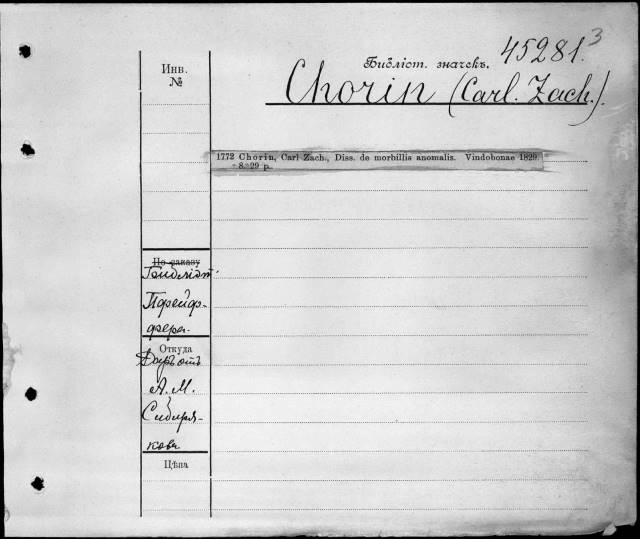 Инв. №
Библіот. значекъ.
45281.3
Chorin (Carl. Zach.).
1772 Chorin, Carl Zach., Diss. de morbillis anomalis. Vindobonae 1829
8. 29 p.
По заказу
Библіот.
Пфейф-
фера.
Откуда
Даръ отъ
А. М.
Сибиря-
кова
Цѣна